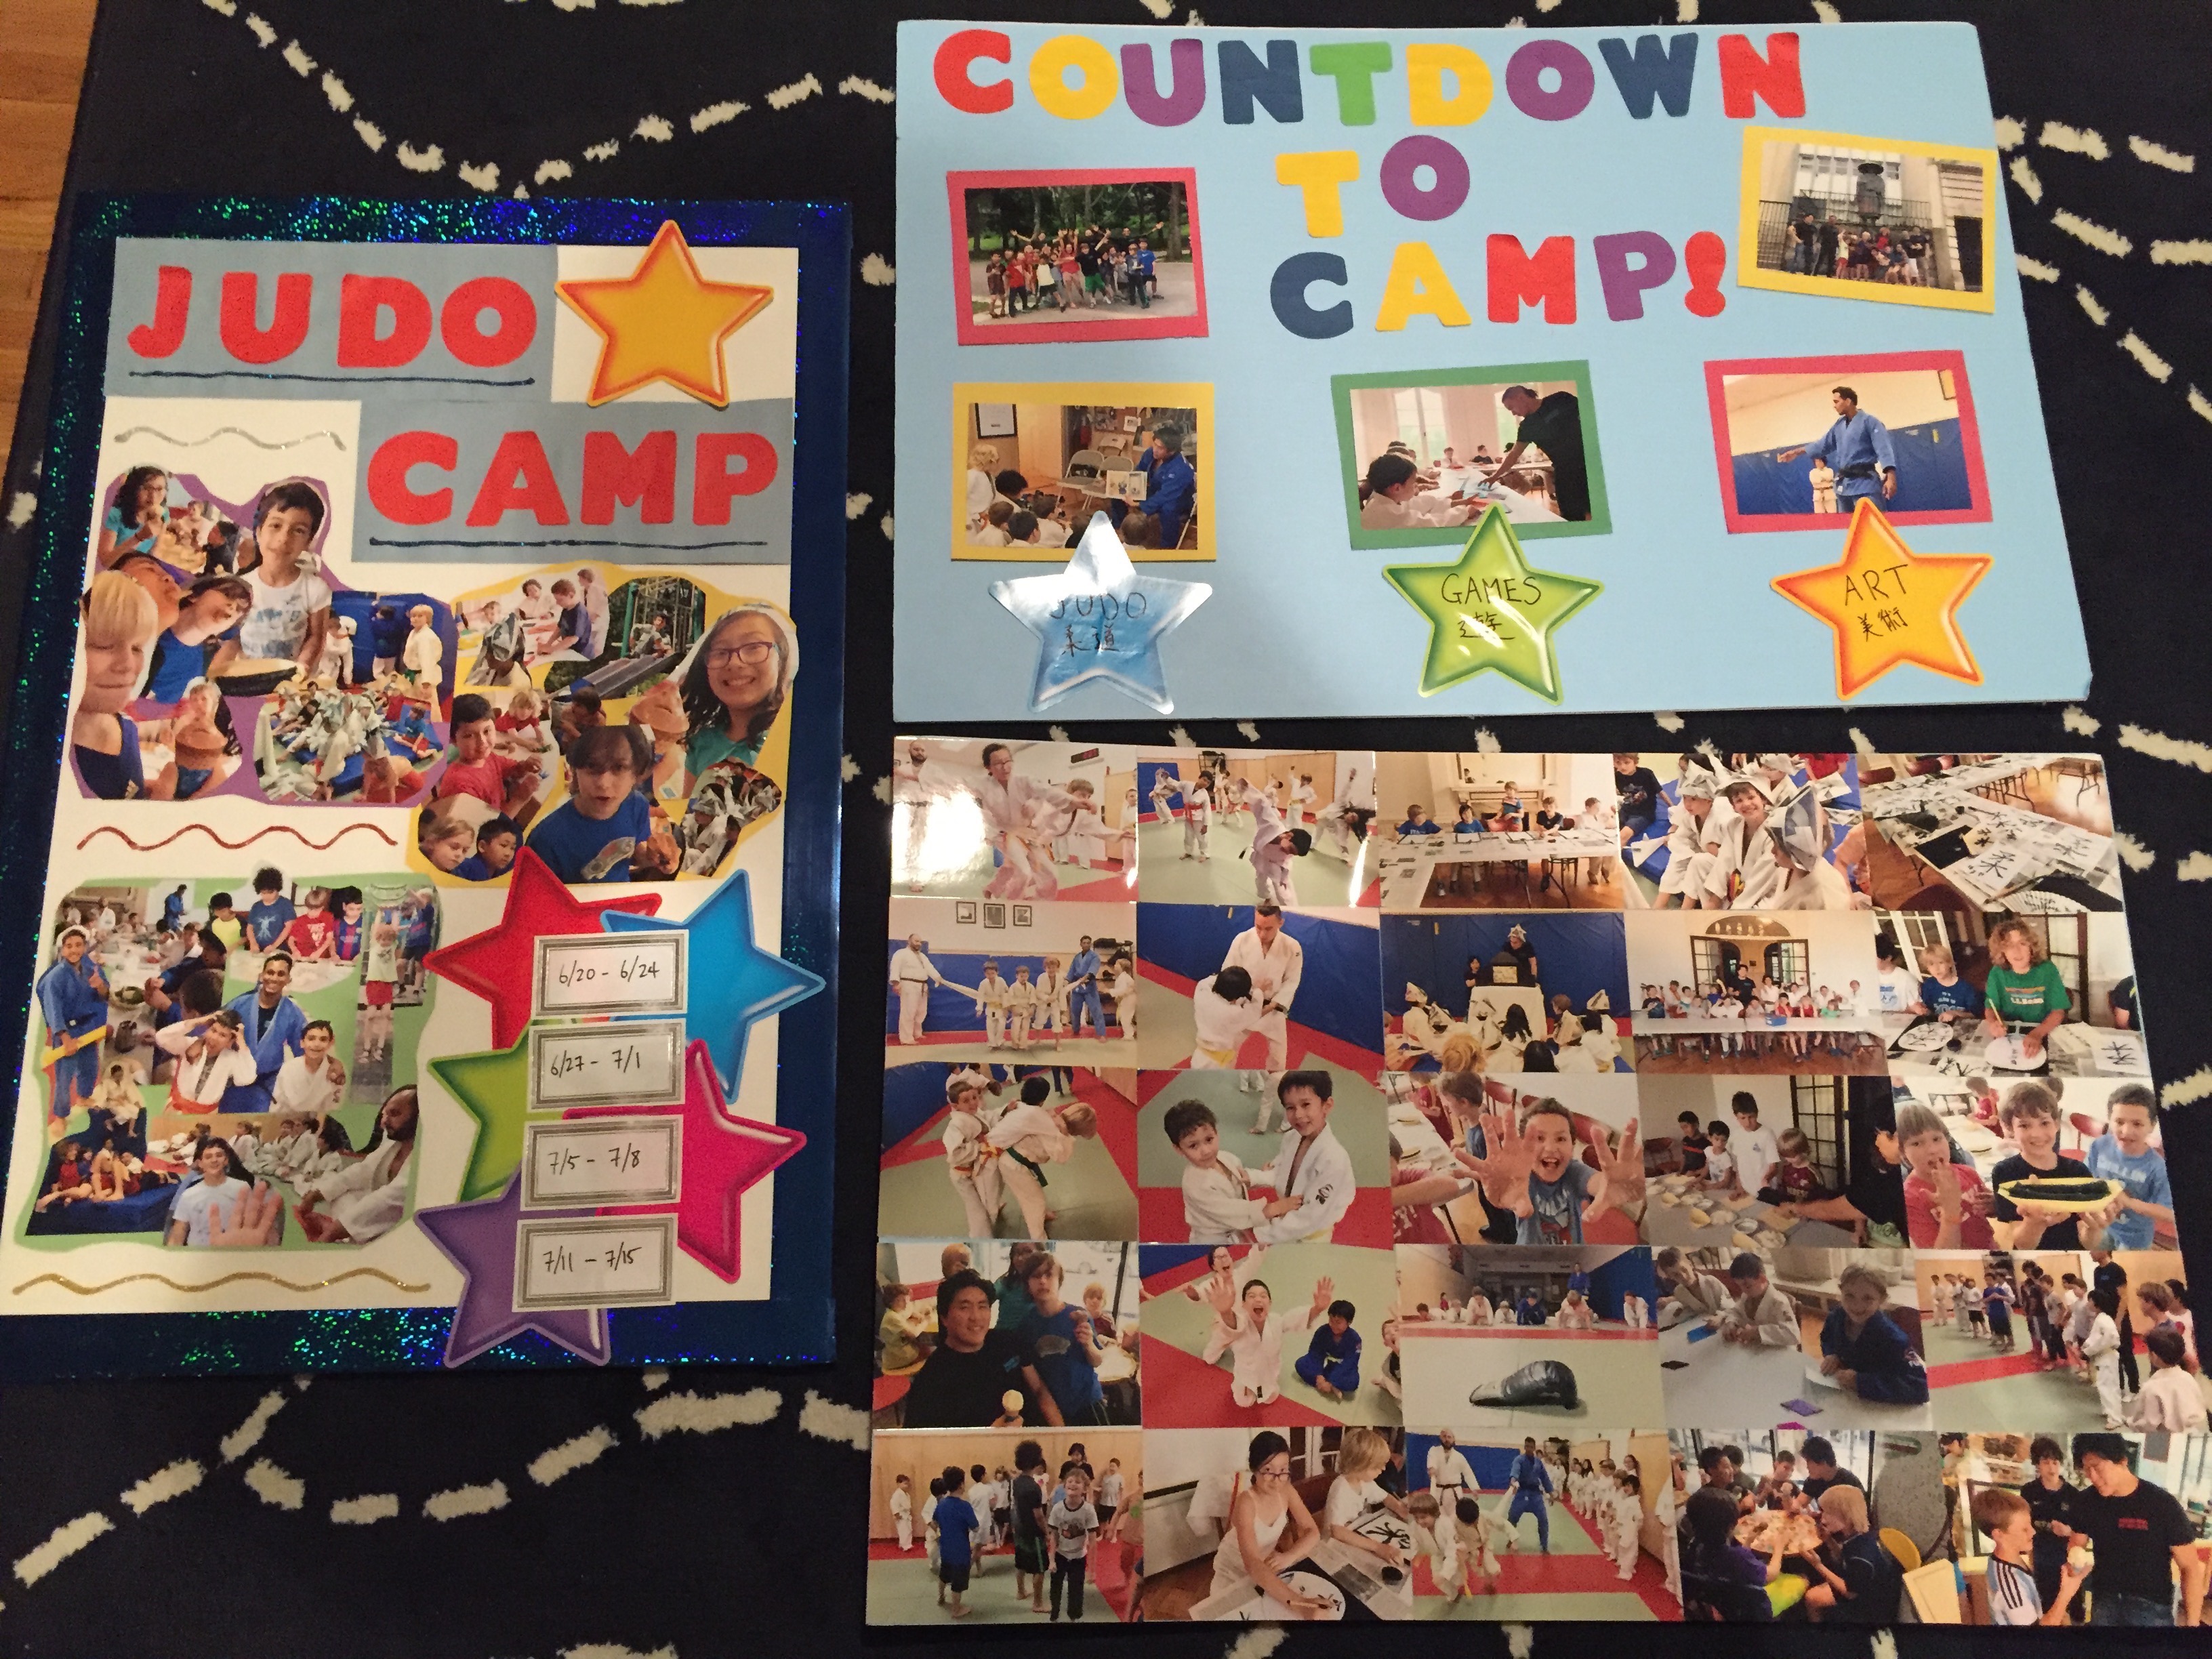 JUDO
CAMP
6/20 - 6/24
6/27 - 7/1
7/5 - 7/8
7/11 - 7/15
COUNTDOWN
TO
CAMP!
JUDO
柔道
GAMES
遊
ART
美術
柔